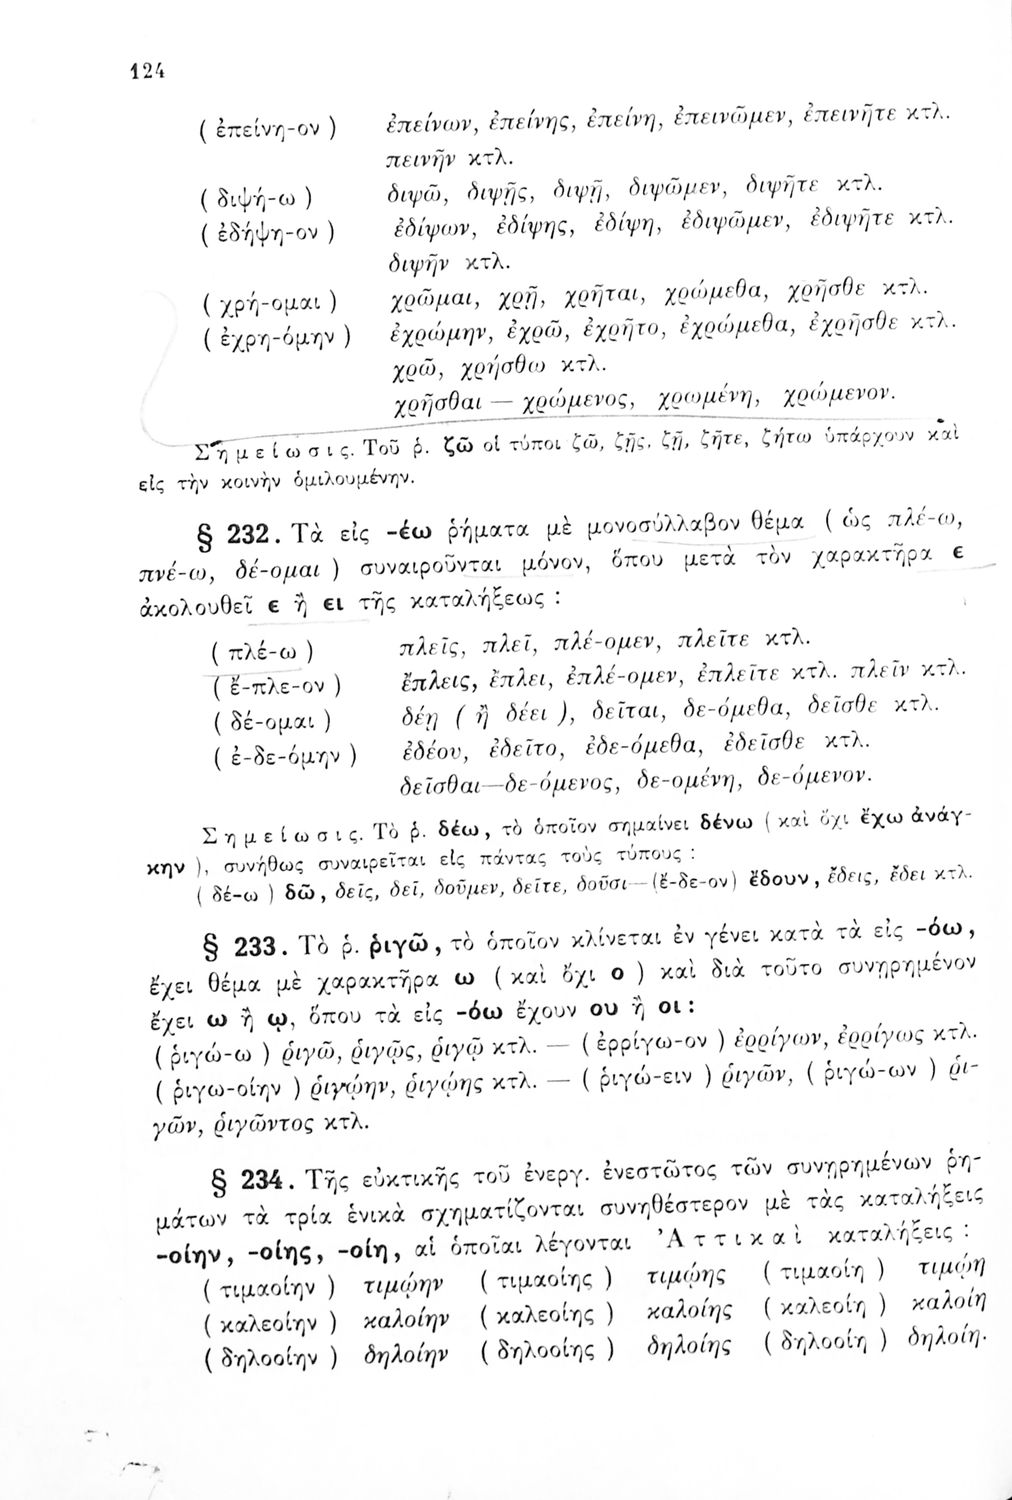 124
( ἐπείνη-ον ) ἐπείνων, ἐπείνης, ἐπείνη, ἐπεινῶμεν, ἐπεινῆτε κτλ.
πεινῆν κτλ.
( διψή-ω ) διψῶ, διψῇς, διψῇ, διψῶμεν, διψῆτε κτλ.
( ἐδήψη-ον ) ἐδίψων, ἐδίψης, ἐδίψη, ἐδιψῶμεν, ἐδιψῆτε κτλ.
διψῆν κτλ.
( χρή-ομαι ) χρῶμαι, χρῇ, χρῆται, χρώμεθα, χρῆσθε κτλ.
( ἐχρη-όμην ) ἐχρώμην, ἐχρῶ, ἐχρῆτο, ἐχρώμεθα, ἐχρῆσθε κτλ.
χρῶ, χρήσθω κτλ.
χρῆσθαι — χρώμενος, χρωμένη, χρώμενον.
Σημείωσις. Τοῦ ῥ. ζῶ οἱ τύποι ζῶ, ζῇς, ζῇ, ζῆτε, ζήτω ὑπάρχουν καὶ
εἰς τὴν κοινὴν ὁμιλουμένην.
§ 232. Τὰ εἰς -έω ῥήματα μὲ μονοσύλλαβον θέμα ( ὡς πλέ-ω,
πνέ-ω, δέ-ομαι ) συναιροῦνται μόνον, ὅπου μετὰ τὸν χαρακτῆρα ε
ἀκολουθεῖ ε ἢ ει τῆς καταλήξεως :
( πλέ-ω ) πλεῖς, πλεῖ, πλέ-ομεν, πλεῖτε κτλ.
( ἔ-πλε-ον ) ἔπλεις, ἔπλει, ἐπλέ-ομεν, ἐπλεῖτε κτλ. πλεῖν κτλ.
( δέ-ομαι ) δέῃ ( ἢ δέει ), δεῖται, δε-όμεθα, δεῖσθε κτλ.
( ἐ-δε-όμην ) ἐδέου, ἐδεῖτο, ἐδε-όμεθα, ἐδεῖσθε κτλ.
δεῖσθαι—δε-όμενος, δε-ομένη, δε-όμενον.
Σημείωσις. Τὸ ῥ. δέω, τὸ ὁποῖον σημαίνει δένω ( καὶ ὄχι ἔχω ἀνάγ-
κην ), συνήθως συναιρεῖται εἰς πάντας τοὺς τύπους :
( δέ-ω ) δῶ, δεῖς, δεῖ, δοῦμεν, δεῖτε, δοῦσι—(ἔ-δε-ον) ἔδουν, ἔδεις, ἔδει κτλ.
§ 233. Τὸ ῥ. ῥιγῶ, τὸ ὁποῖον κλίνεται ἐν γένει κατὰ τὰ εἰς -όω,
ἔχει θέμα μὲ χαρακτῆρα ω ( καὶ ὄχι ο ) καὶ διὰ τοῦτο συνῃρημένον
ἔχει ω ἢ ῳ, ὅπου τὰ εἰς -όω ἔχουν ου ἢ οι :
( ῥιγώ-ω ) ῥιγῶ, ῥιγῷς, ῥιγῷ κτλ. — ( ἐρρίγω-ον ) ἐρρίγων, ἐρρίγως κτλ.
( ῥιγω-οίην ) ῥιγῴην, ῥιγῴης κτλ. — ( ῥιγώ-ειν ) ῥιγῶν, ( ῥιγώ-ων ) ῥι-
γῶν, ῥιγῶντος κτλ.
§ 234. Τῆς εὐκτικῆς τοῦ ἐνεργ. ἐνεστῶτος τῶν συνῃρημένων ῥη-
μάτων τὰ τρία ἑνικὰ σχηματίζονται συνηθέστερον μὲ τὰς καταλήξεις
-οίην, -οίης, -οίη, αἱ ὁποῖαι λέγονται Ἀττικαὶ καταλήξεις :
( τιμαοίην ) τιμῴην ( τιμαοίης ) τιμῴης ( τιμαοίη ) τιμῴη
( καλεοίην ) καλοίην ( καλεοίης ) καλοίης ( καλεοίη ) καλοίη
( δηλοοίην ) δηλοίην ( δηλοοίης ) δηλοίης ( δηλοοίη ) δηλοίη.